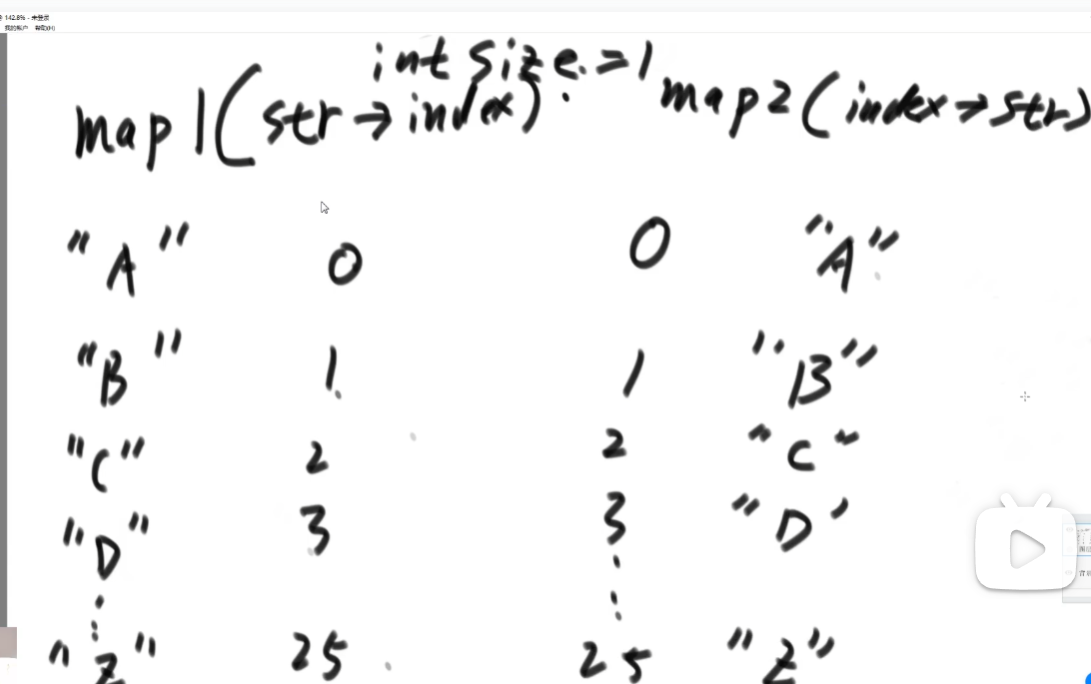 142.8% - 未登录
我的帐户 帮助(H)
int size = 1
map1(str→index) map2(index→str)
"A" 0 0 "A"
"B" 1 1 "B"
"C" 2 2 "C"
"D" 3 3 "D'
"Z" 25 25 "Z"